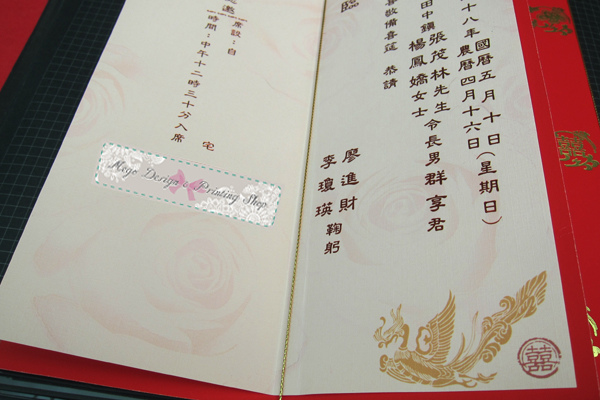 十八年 國曆五月十日(星期日)
農曆四月十六日
田中鎮張茂林先生令長男群享君
楊鳳嬌女士
喜敬備喜筵 恭請
廖進財
李瓊瑛鞠躬
席設:自宅
時間:中午十二時三十分入席
Mego Design & Printing Shop
囍